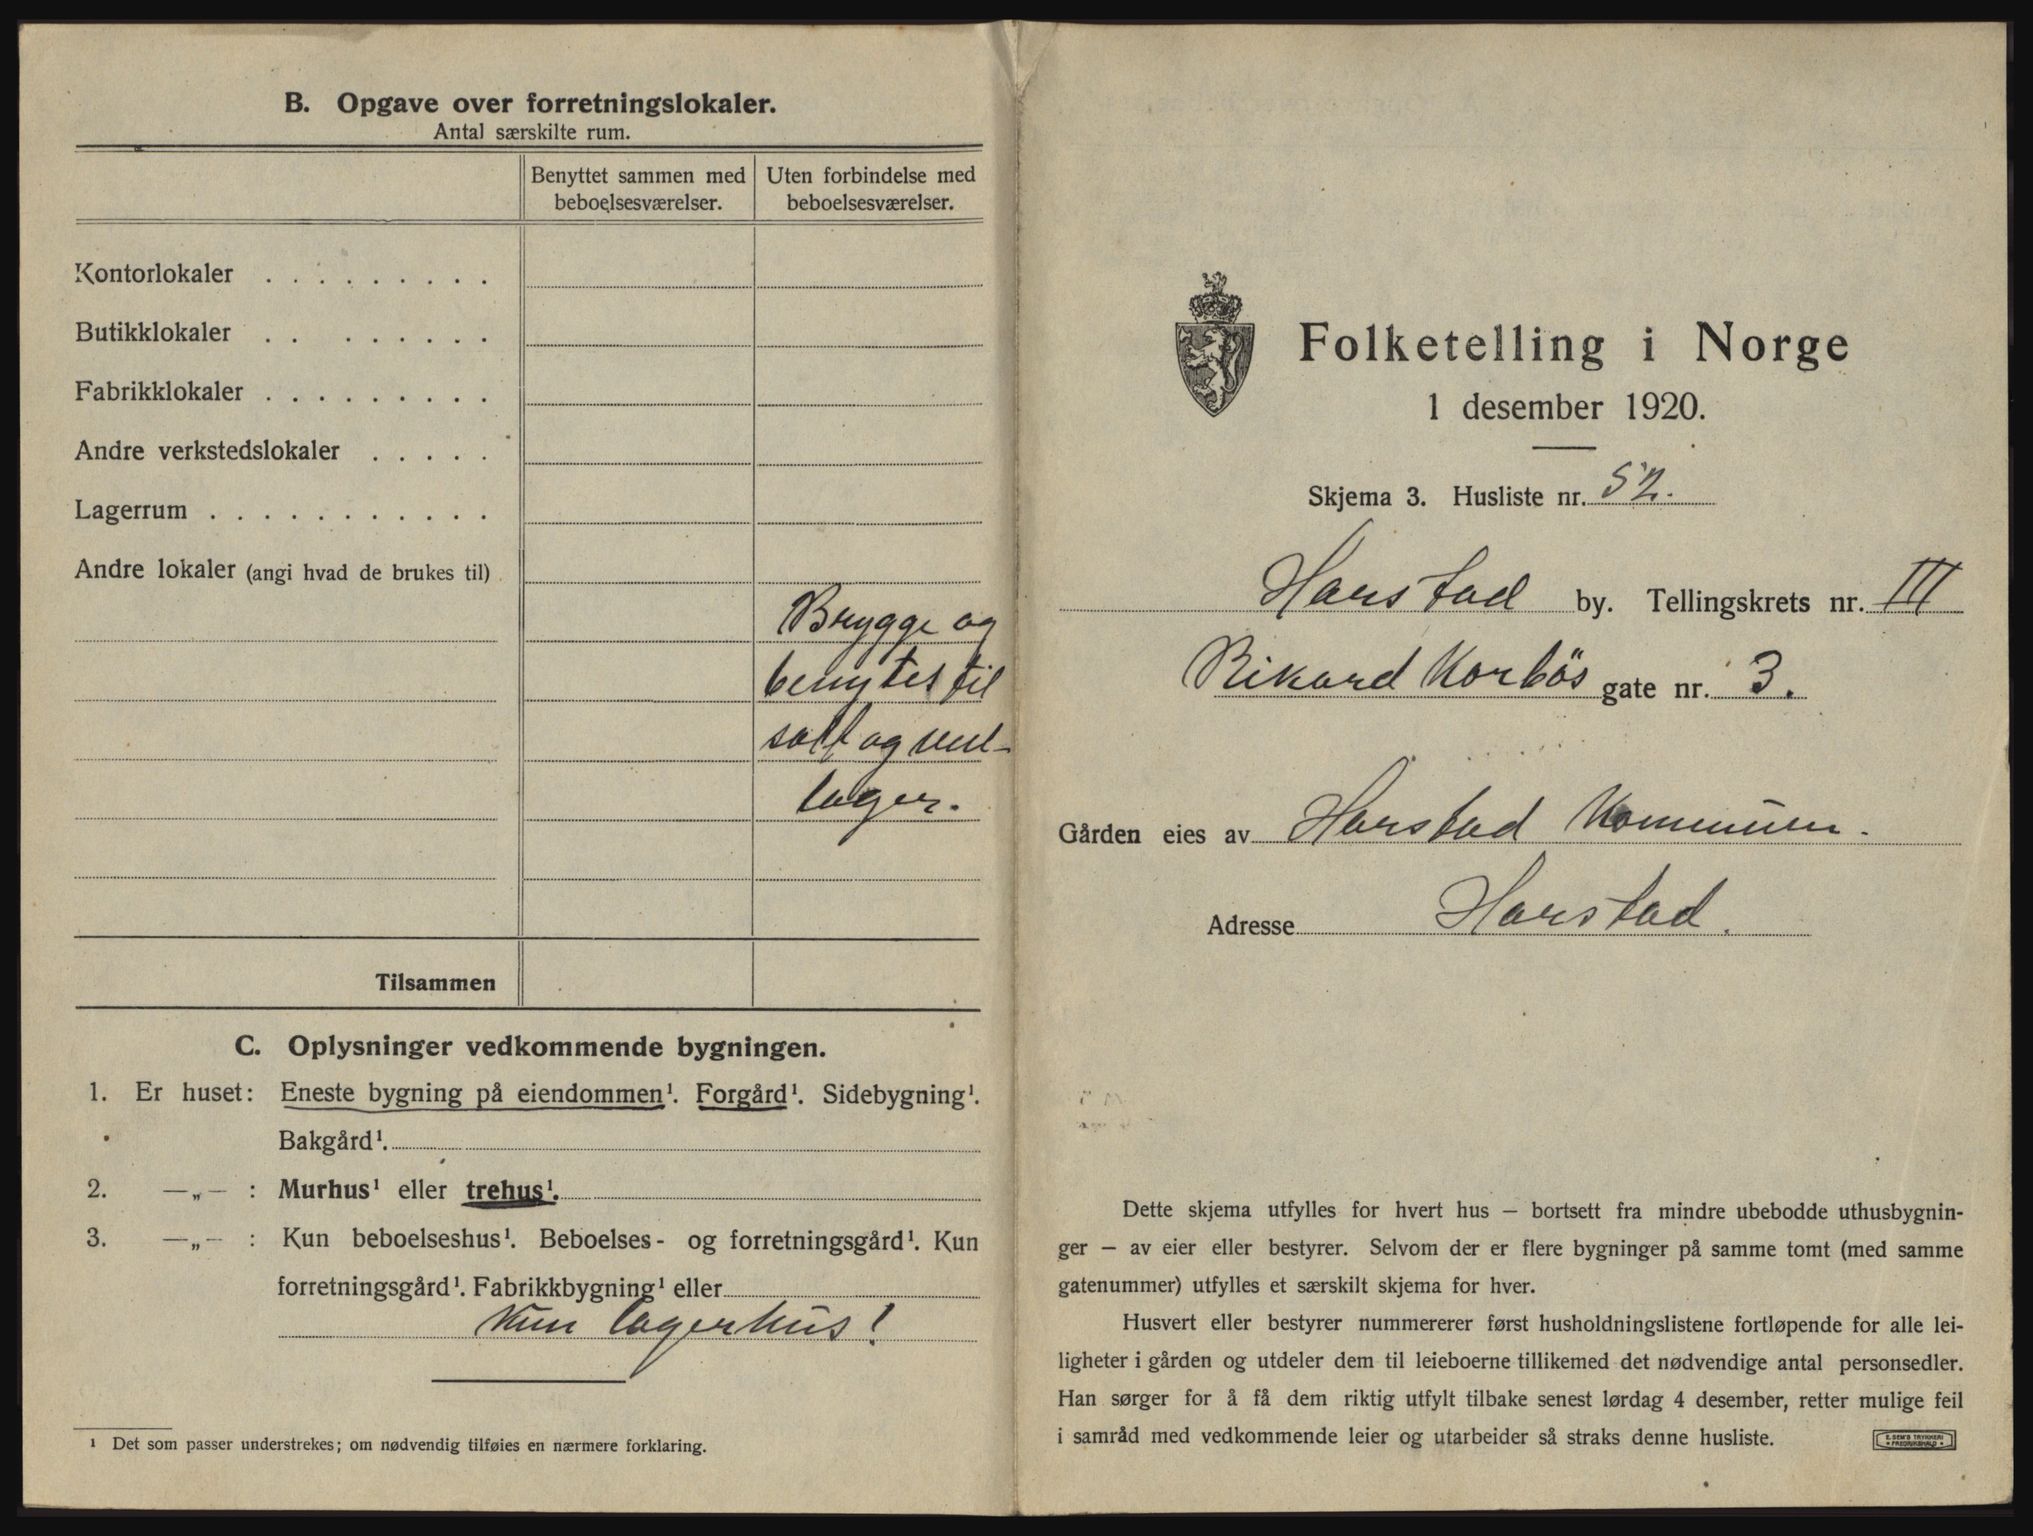 B. Opgave over forretningslokaler.
Antal særskilte rum.
Benyttet sammen med beboelsesværelser.
Uten forbindelse med beboelsesværelser.
Kontorlokaler . . . . . . . . .
Butikklokaler . . . . . . . .
Fabrikklokaler . . . . . . . . .
Andre verkstedslokaler . . . . .
Lagerrum . . . . . . . . . . .
Andre lokaler (angi hvad de brukes til) .
Brygge og
benytes til
salt og
lager.
Tilsammen
C. Oplysninger vedkommende bygningen.
1. Er huset: Eneste bygning på eiendommen¹. Forgård¹. Sidebygning¹.
Bakgård¹.
2. —„— : Murhus¹ eller trehus¹.
3. —„— : Kun beboelseshus¹. Beboelses- og forretningsgård¹. Kun
forretningsgård¹. Fabrikkbygning¹ eller
Kun lagerhus!
¹ Det som passer understrekes; om nødvendig tilføies en nærmere forklaring.
Folketelling i Norge
1 desember 1920.
Skjema 3. Husliste nr. 52.
Harstad by. Tellingskrets nr. III
Rikard Korbös gate nr. 3.
Gården eies av Harstad Kommune.
Adresse Harstad.
Dette skjema utfylles for hvert hus – bortsett fra mindre ubebodde uthusbygnin-
ger – av eier eller bestyrer. Selvom der er flere bygninger på samme tomt (med samme
gatenummer) utfylles et særskilt skjema for hver.
Husvert eller bestyrer nummererer først husholdningslistene fortløpende for alle lei-
ligheter i gården og utdeler dem til leieboerne tillikemed det nødvendige antal personsedler.
Han sørger for å få dem riktig utfylt tilbake senest lørdag 4 desember, retter mulige feil
i samråd med vedkommende leier og utarbeider så straks denne husliste.
E. SEM'S TRYKKERI
FREDRIKSHALD